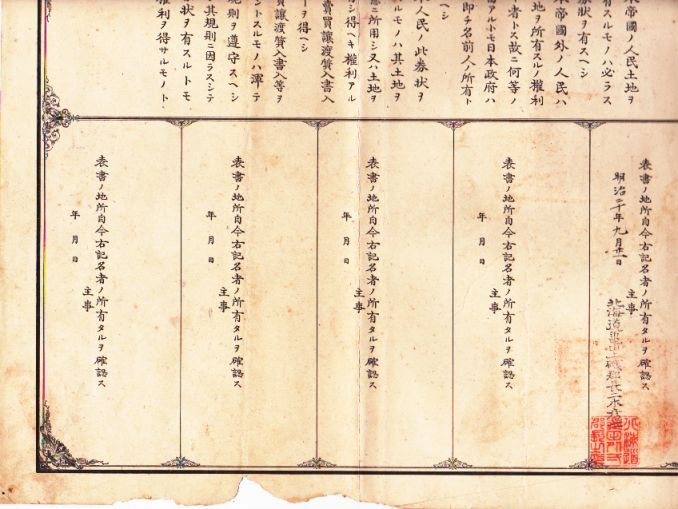 本帝國ノ人民土地ヲ
有スルモノハ必ラス
券狀ヲ有スヘシ
本帝國外ノ人民ハ
地ヲ所有スルノ權利
者トス故ニ何等ノ
アルトモ日本政府ハ
即チ名前人ノ所有ト
ヘシ
人民ノ此券狀ヲ
スルモノハ其土地ヲ
ニ所用シ又ハ土地ヲ
得ヘキ權利アル
賣買讓渡質入書入
ヲ得ヘシ
買讓渡質入書入等ヲ
ントスルモノハ渾テ
規則ヲ遵守スヘシ
其規則ニ因ラスシテ
狀ヲ有スルトモ
權利ヲ得サルモノト
表書ノ地所自今右記名者ノ所有タルヲ確認ス
明治二十年九月 日
主事
北海道
表書ノ地所自今右記名者ノ所有タルヲ確認ス
年 月 日
主事
表書ノ地所自今右記名者ノ所有タルヲ確認ス
年 月 日
主事
表書ノ地所自今右記名者ノ所有タルヲ確認ス
年 月 日
主事
表書ノ地所自今右記名者ノ所有タルヲ確認ス
年 月 日
主事